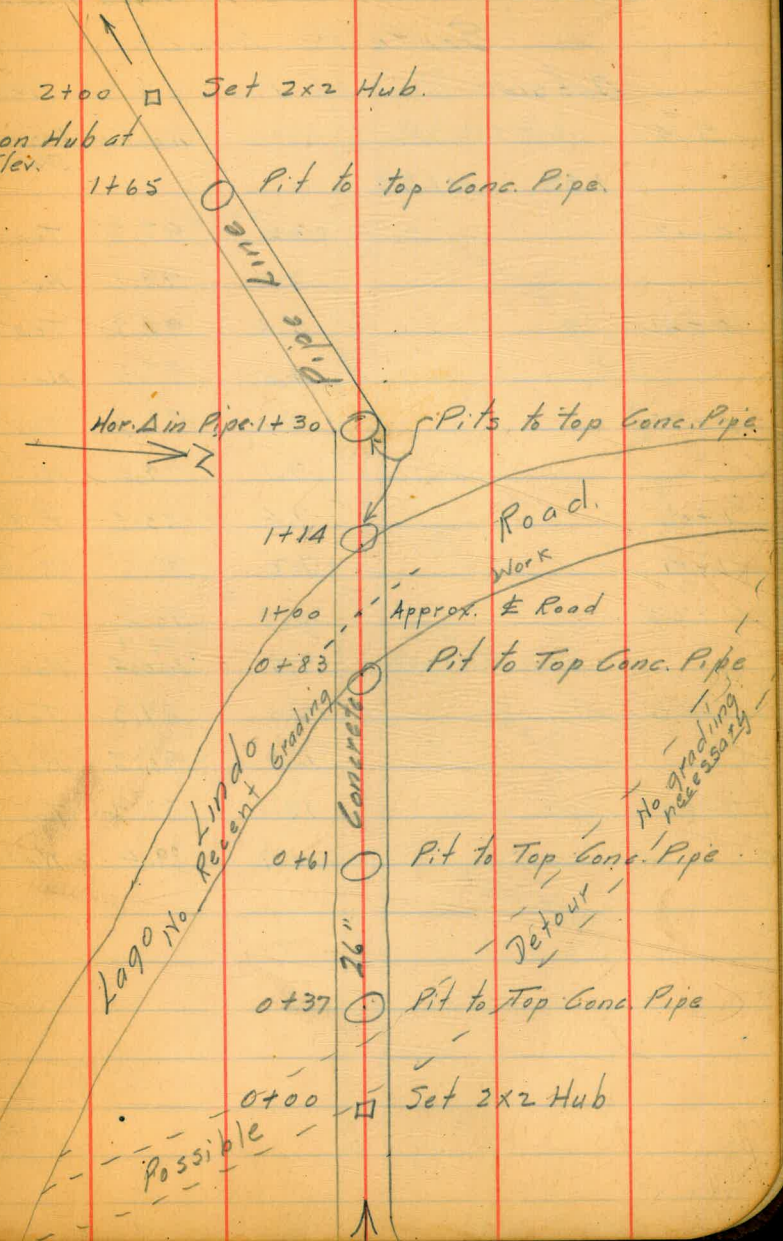 2+00 Set 2x2 Hub.
on Hub at
Elev.
1+65 Pit to top Conc. Pipe.
Pipe Line
Hor. Δ in Pipe. 1+30 Pits to top Conc. Pipe
1+14
Road.
Work
1+00 Approx. ℄ Road
0+83 Pit to Top Conc. Pipe
No grading
necessary
Lago Lindo
No Recent Grading
26" Concrete
0+61 Pit to Top Conc. Pipe
Detour
0+37 Pit to Top Conc. Pipe
0+00 Set 2x2 Hub
Possible